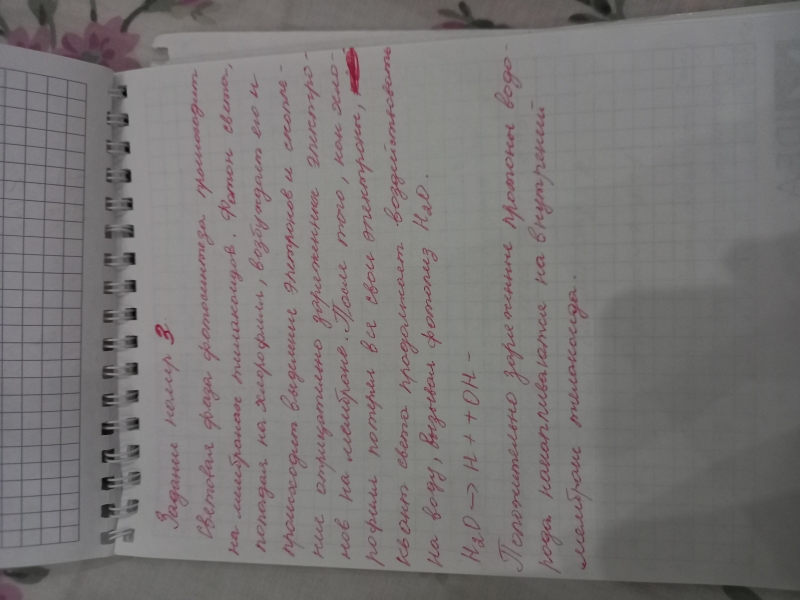 Задание номер 3.
Световая фаза фотосинтеза происходит
на мембранах тилакоидов. Фотон света,
попадая на хлорофилл, возбуждает его и
происходит выделение элетронов и скопле-
ние отрицательно заряженных электро-
нов на мембране. После того, как хло-
рофилл потерял все свои электроны,
квант света продолжает воздействовать
на воду, вызывая фотолиз H2O.
H2O → H+ + OH-
Положительно заряженные протоны водо-
рода накапливаются на внутренней
мембране тилакоида.